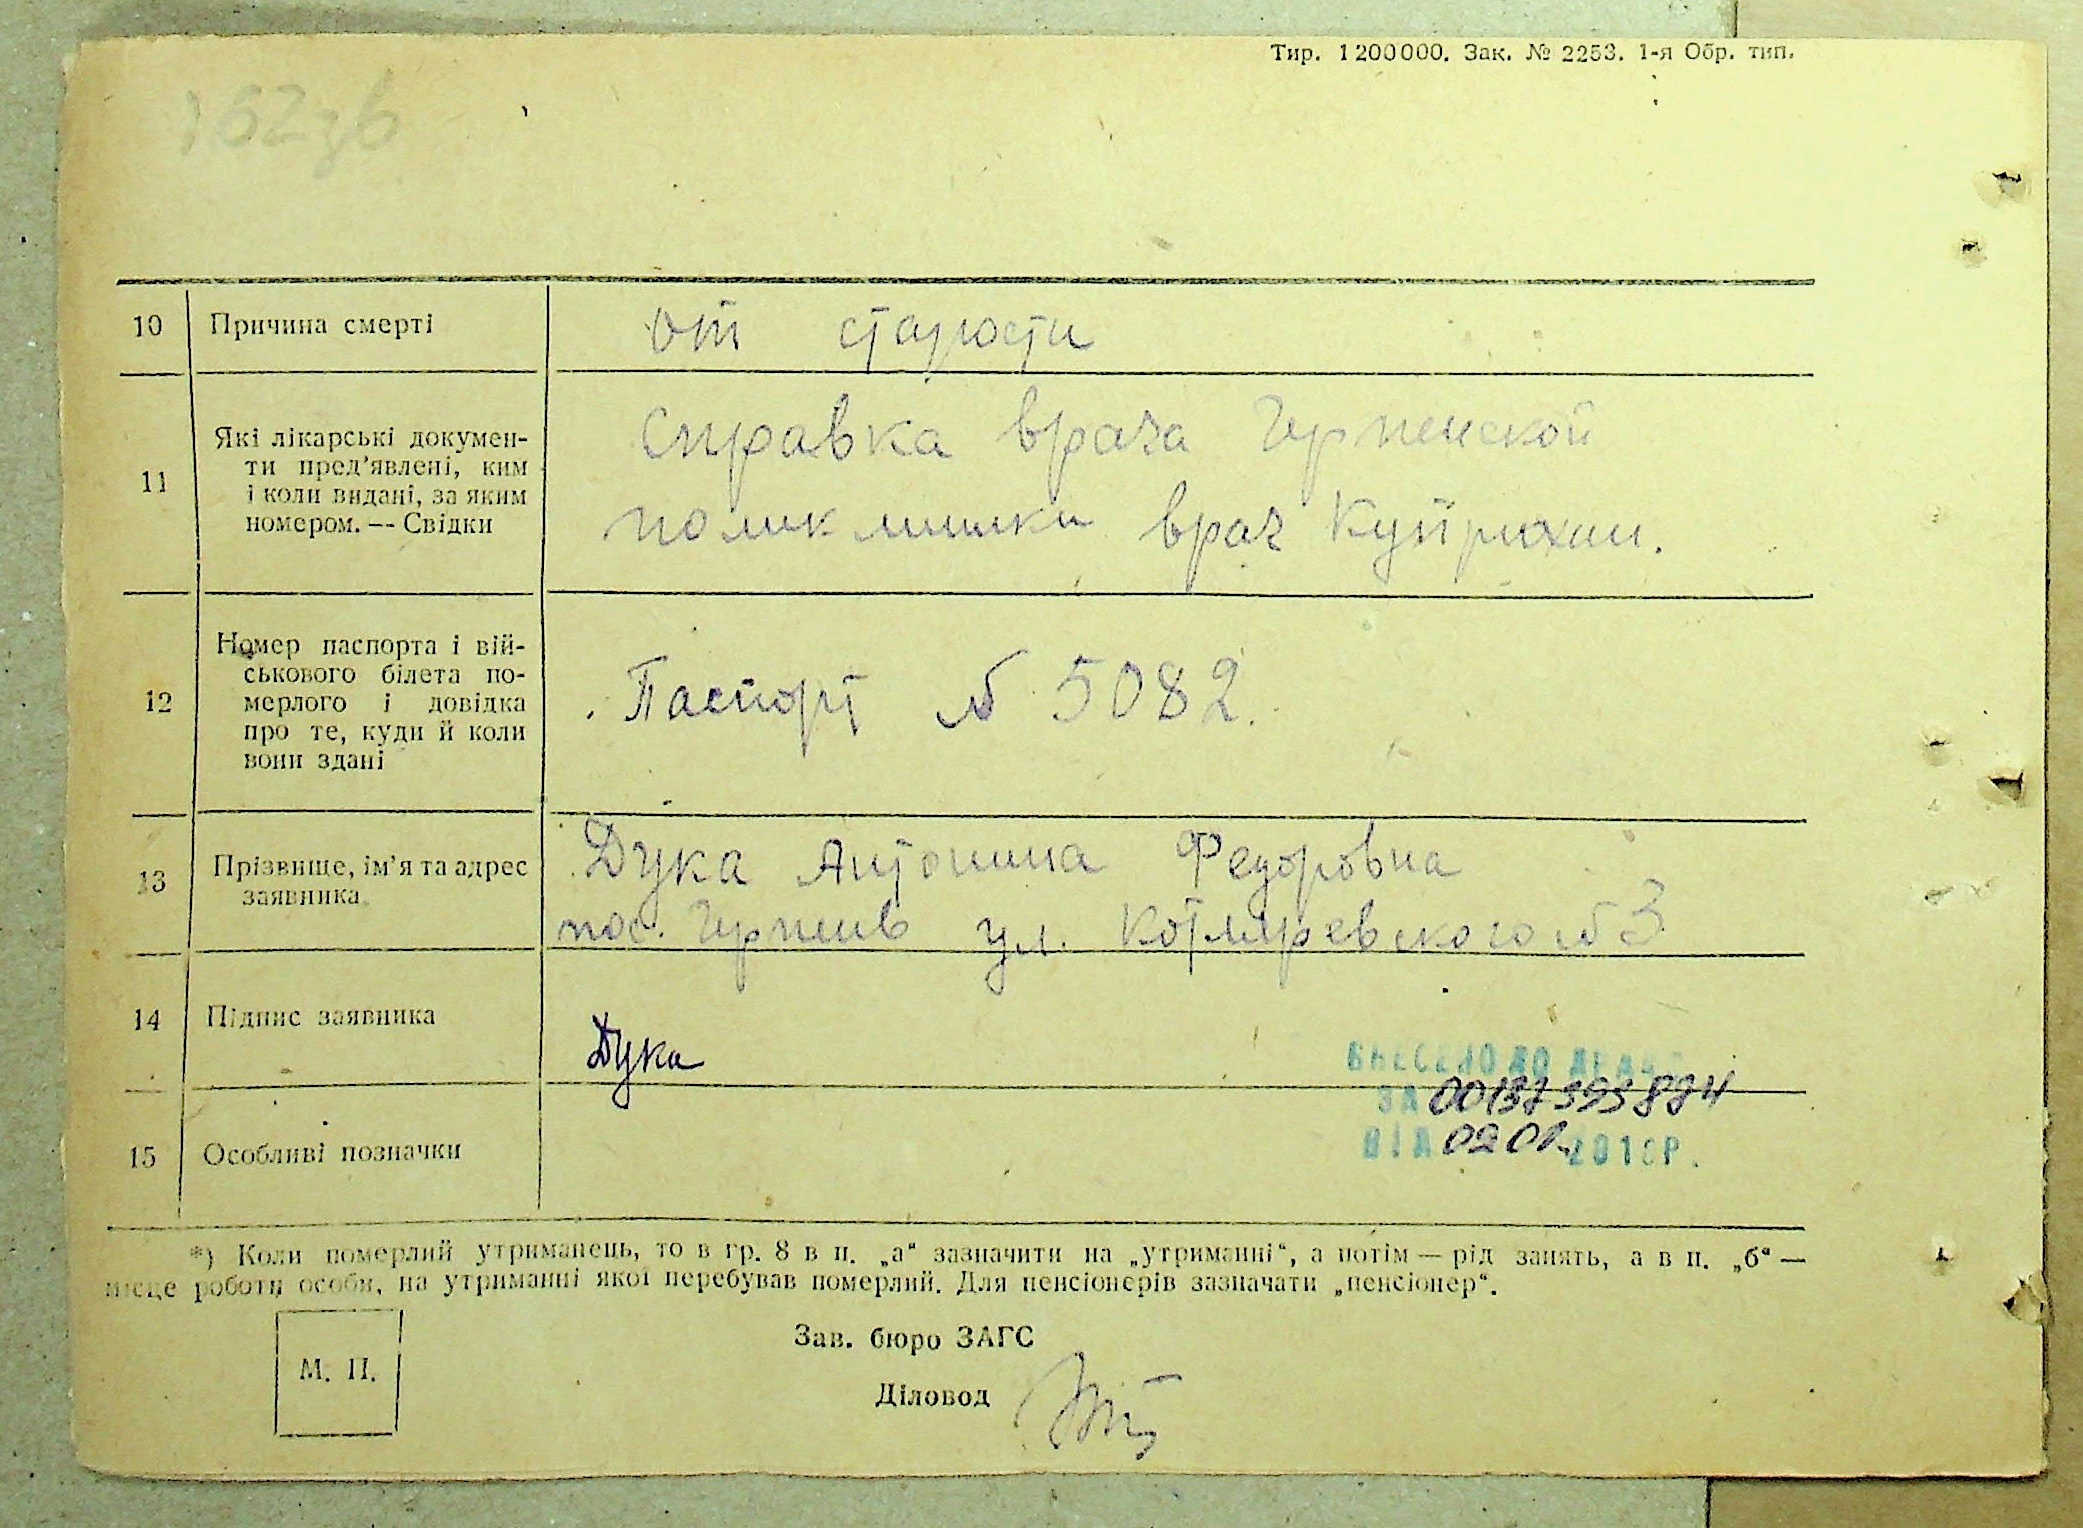 Тир. 1200000. Зак. № 2253. 1-я Обр. тип.
10 Причина смерті
от старости
11 Які лікарські докумен-
ти пред’явлені, ким
і коли видані, за яким
номером. — Свідки
Справка врача Ирпенской
поликлиники врач
12 Номер паспорта і вій-
ськового білета по-
мерлого і довідка
про те, куди й коли
вони здані
Паспорт № 5082.
13 Прізвище, ім’я та адрес
заявника
Дука Антонина Федоровна
пос. Ирпень ул. Котляревского № 3
14 Підпис заявника
Дука
ВНЕСЕНО ДО ДРАЦС
ЗА
ВІД 02 01. 2018Р.
15 Особливі позначки
*) Коли померлий утриманець, то в гр. 8 в п. „а“ зазначити на „утриманні“, а потім — рід занять, а в п. „б“ —
місце роботи особи, на утриманні якої перебував померлий. Для пенсіонерів зазначати „пенсіонер“.
М. П.
Зав. бюро ЗАГС
Діловод